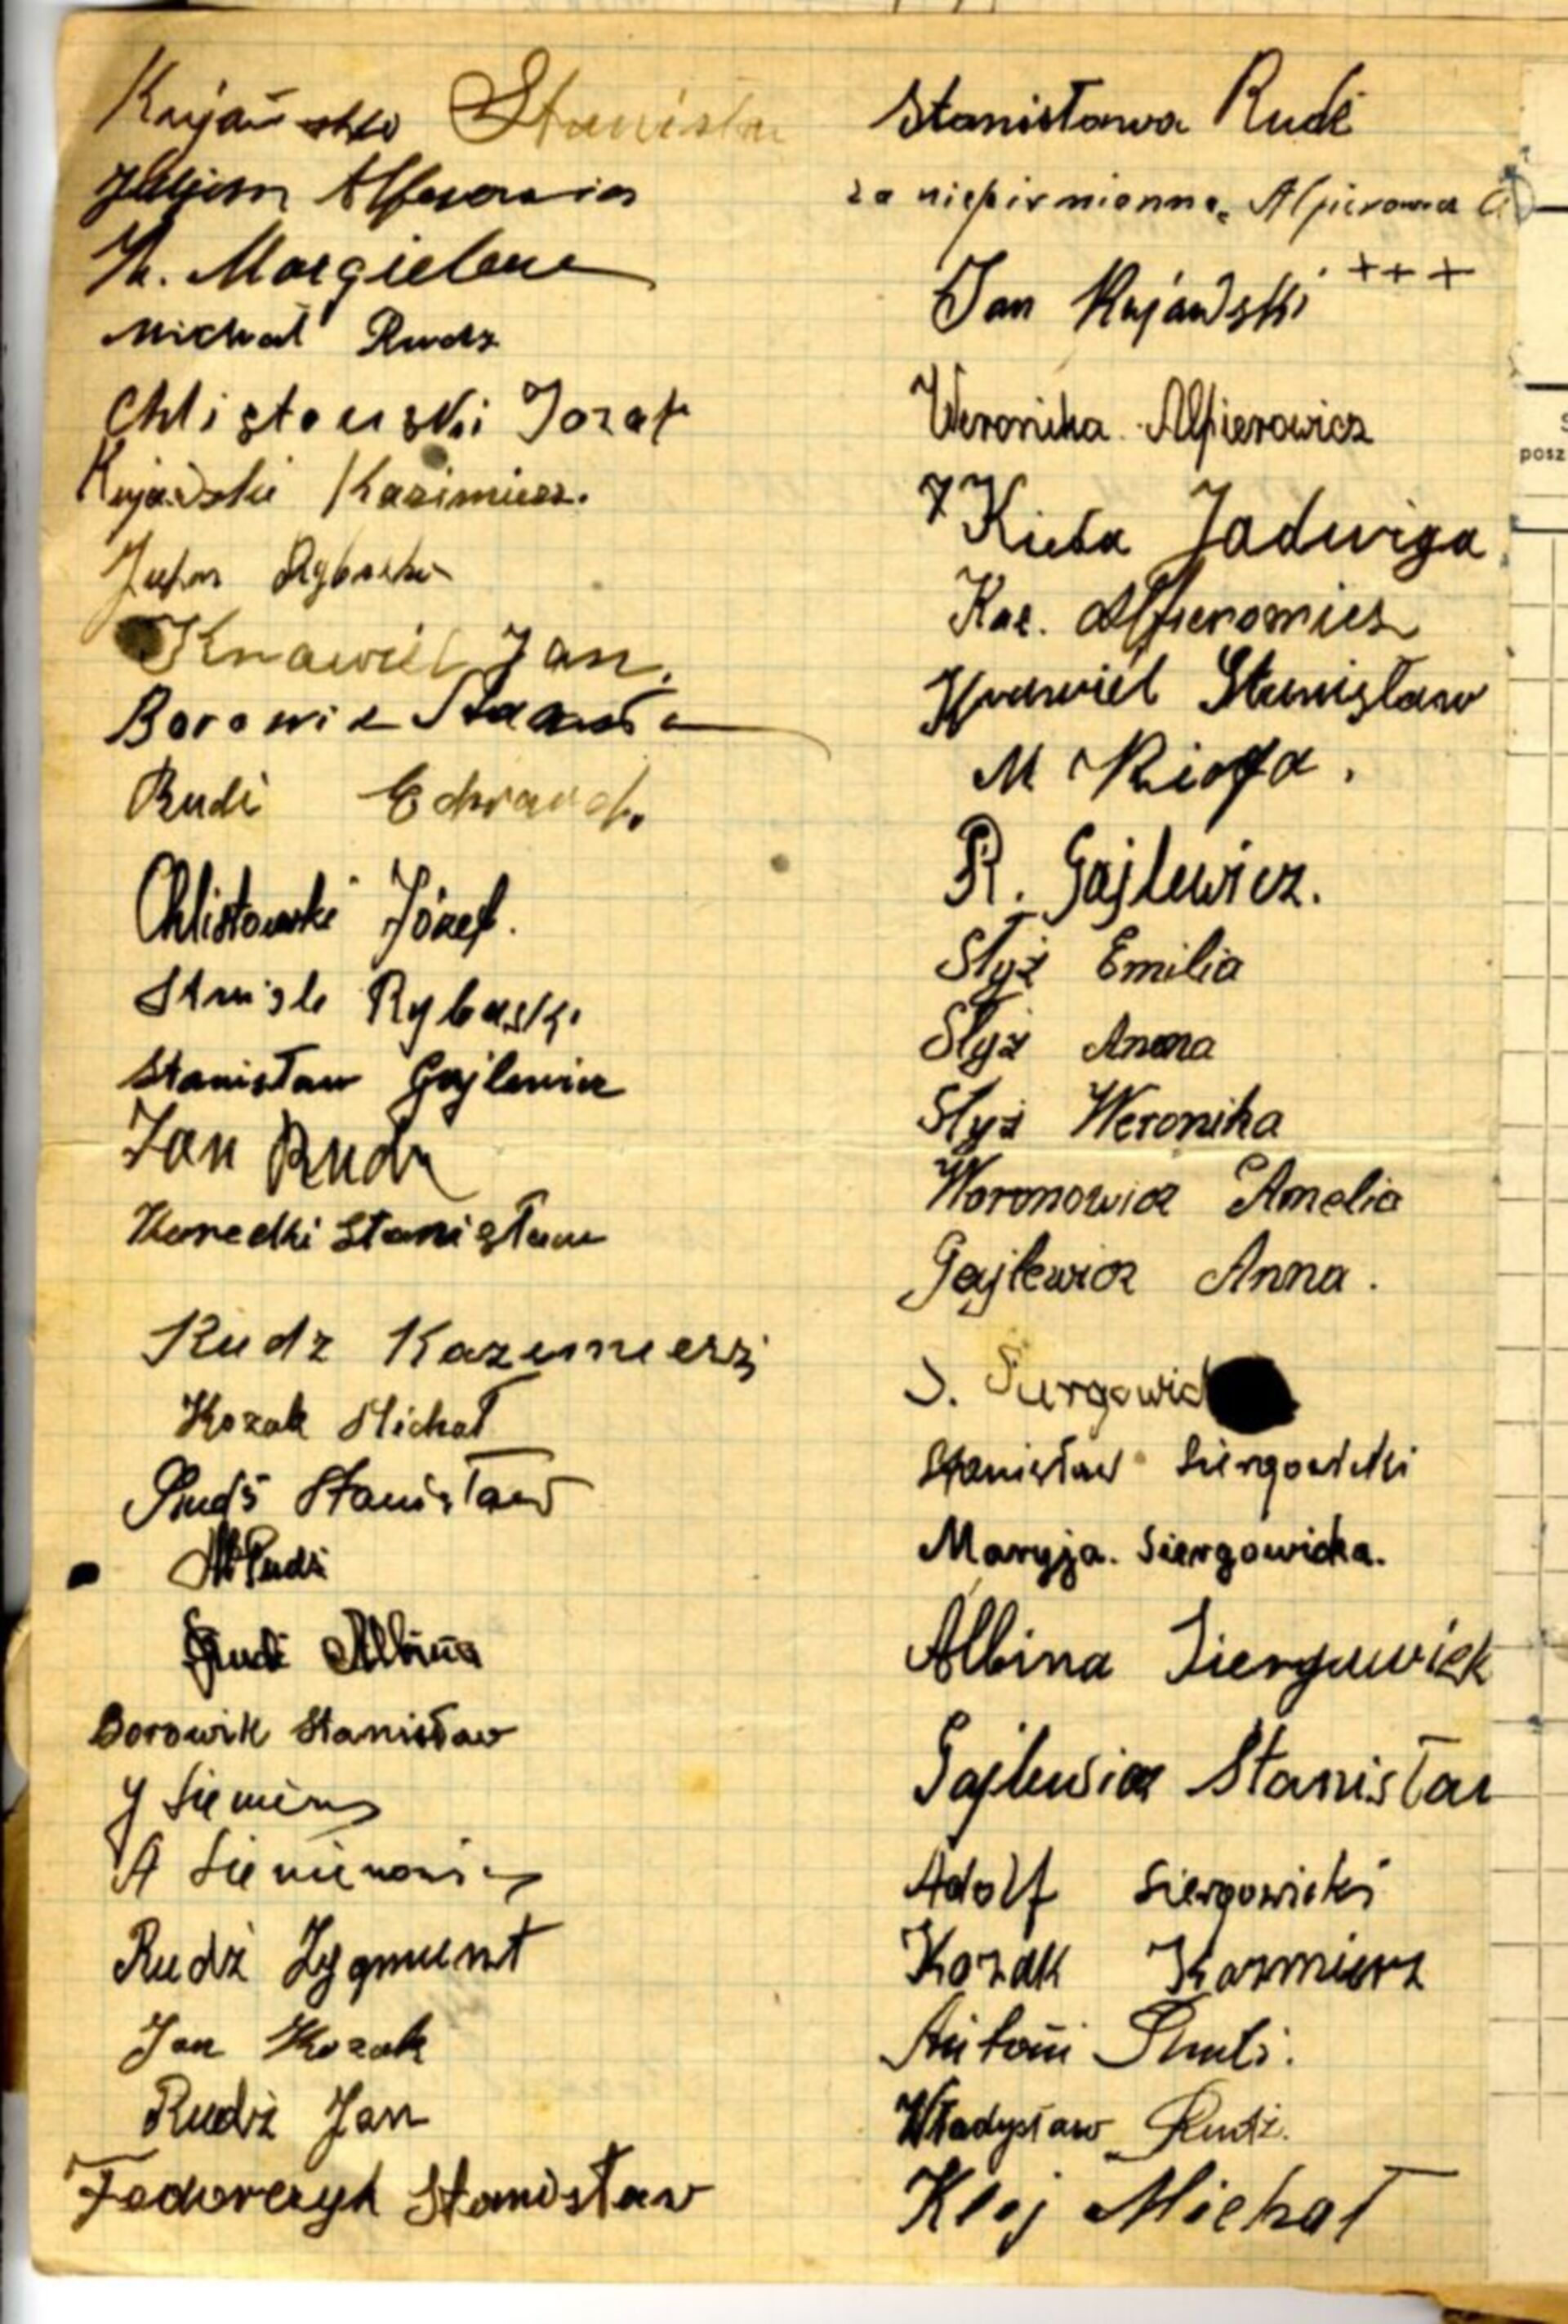 Stanisław
W. Margielewi
Michał Rudz
Chlistowski Jozef
Kujawski Kazimierz.
Krawiel Jan.
Borowik
Rudź Edward.
Chlistowski Józef.
Rybaski
Stanisław Gajlewicz
Jan Rudź
Korecki Stanisław
Rudz Kazimierz
Kozak Michał
Rudź Stanisław
M Rudź
Rudź Albina
Borowik Stanisław
J
A
Rudź Zygmunt
Jan Kozak
Rudź Jan
Fedorczyk Stanisław
Stanisława Rudź
za niepiśmienną Alpierowicz
Jan Kujawski +++
Weronika Alfierowicz
Kieła Jadwiga
Kaz. Alfierowicz
Krawiel Stanisław
M
R. Gajlewicz.
Słyż Emilia
Słyż Anna
Słyż Weronika
Woronowicz Amelia
Gajlewicz Anna.
Stanisław Siergowicki
Maryja. Siergowicka.
Albina Siergowick
Gajlewicz Stanisław
Adolf Siergowicki
Kozak Kazmierz
Antoni Rudź.
Władysław Rudź.
Kloj Michał
posz